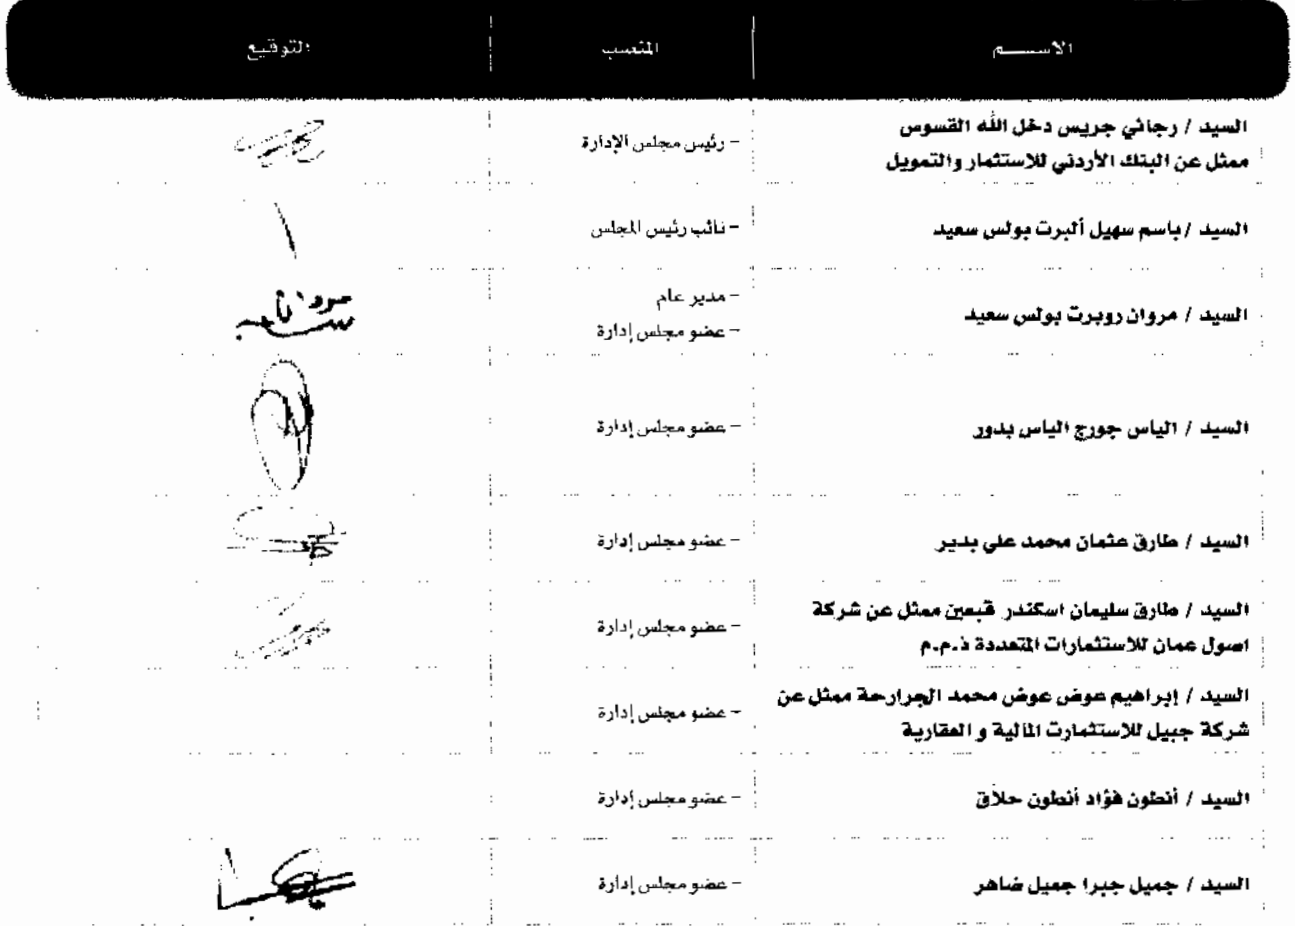 الاســـم المنصب التوقيع
السيد / رجائي جريس دخل الله القسوس
ممثل عن البنك الأردني للاستثمار والتمويل
- رئيس مجلس الإدارة
السيد / باسم سهيل ألبرت بولس سعيد
- نائب رئيس المجلس
السيد / مروان روبرت بولس سعيد
- مدير عام
- عضو مجلس إدارة
مروان
سعيد
السيد / الياس جورج الياس بدور
- عضو مجلس إدارة
السيد / طارق عثمان محمد علي بدير
- عضو مجلس إدارة
السيد / طارق سليمان اسكندر قبعين ممثل عن شركة
اصول عمان للاستثمارات المتعددة ذ.م.م
- عضو مجلس إدارة
السيد / إبراهيم عوض عوض محمد الجرارحة ممثل عن
شركة جبيل للاستثمارت المالية و العقارية
- عضو مجلس إدارة
السيد / أنطون فؤاد أنطون حلاق
- عضو مجلس إدارة
السيد / جميل جبرا جميل ضاهر
- عضو مجلس إدارة